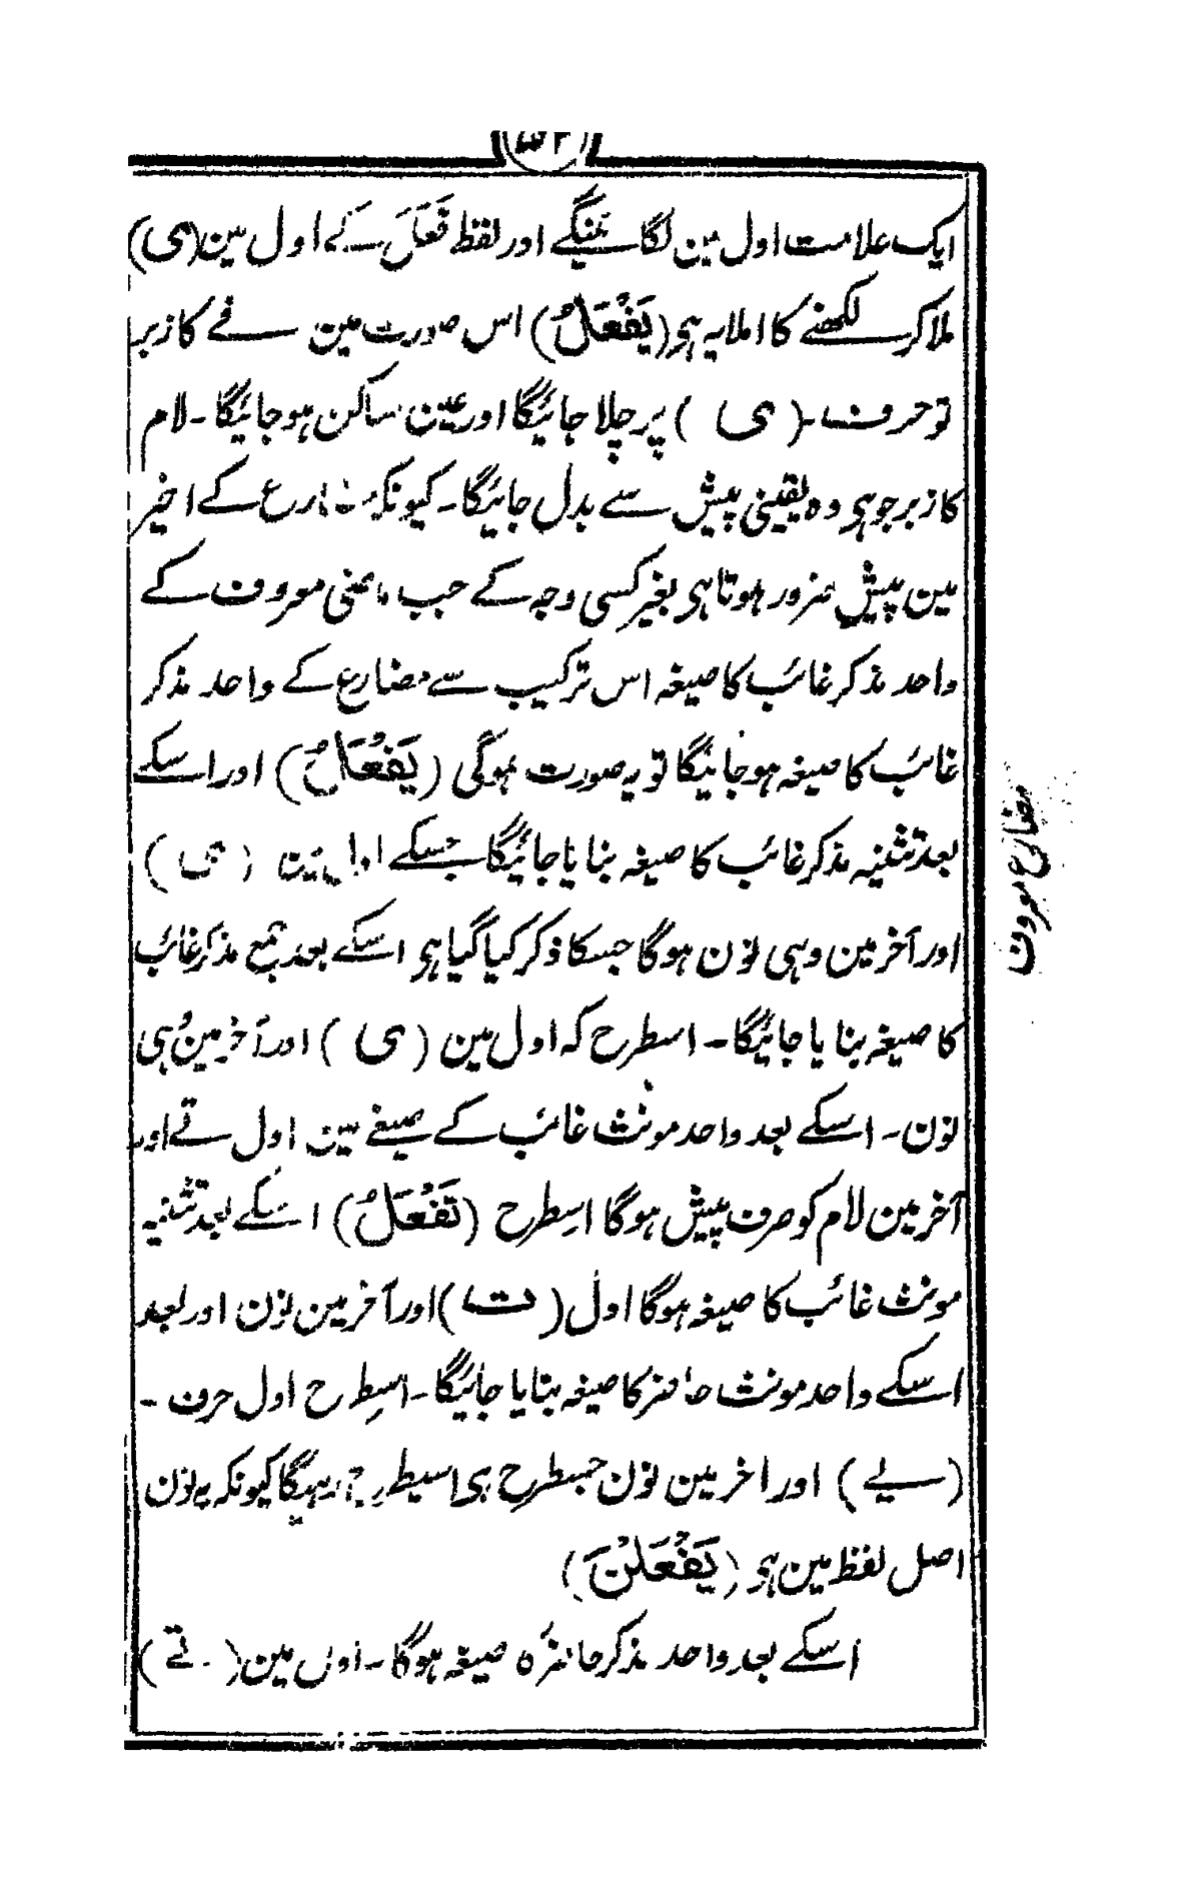 ایک علامت اول مین لگائینگے اور لفظ فَعَلَ کے اول مین (ی)
ملاکر لکھنے کا املا یہ ہی (یَفْعَلُ) اس صورت مین فے کا زبر
تو حرف (ی) پر چلا جائیگا اور عین ساکن ہو جائیگا۔ لام
کا زبر جو ہی وہ یقینی پیش سے بدل جائیگا۔ کیونکہ مضارع کے اخیر
مین پیش ضرور ہوتا ہی بغیر کسی وجہ کے جب ماضی معروف کے
واحد مذکر غائب کا صیغہ اس ترکیب سے مضارع کے واحد مذکر
غائب کا صیغہ ہو جائیگا تو یہ صورت ہوگی (یَفْعَلُ) اور اسکے
بعد تثنیہ مذکر غائب کا صیغہ بنایا جائیگا جسکے اول مین (ی)
اور آخر مین وہی نون ہوگا جسکا ذکر کیا گیا ہی اسکے بعد جمع مذکر غائب
کا صیغہ بنایا جائیگا۔ اسطرح کہ اول مین (ی) اور آخر مین وہی
نون۔ اسکے بعد واحد مونث غائب کے صیغے مین اول تے اور
آخر مین لام کو صرف پیش ہوگا اسطرح (تَفْعَلُ) اسکے بعد تثنیہ
مونث غائب کا صیغہ ہوگا اول (ت) اور آخر مین نون اور بعد
اسکے واحد مونث حاضر کا صیغہ بنایا جائیگا۔ اسطرح اول حرف۔
(یے) اور اخر مین نون جسطرح ہی اسیطرح رہیگا کیونکہ یہ نون
اصل لفظ مین ہی (یَفْعَلْنَ)
اسکے بعد واحد مذکر حاضر کا صیغہ ہوگا۔ اول مین (تے)
مضارع معروف